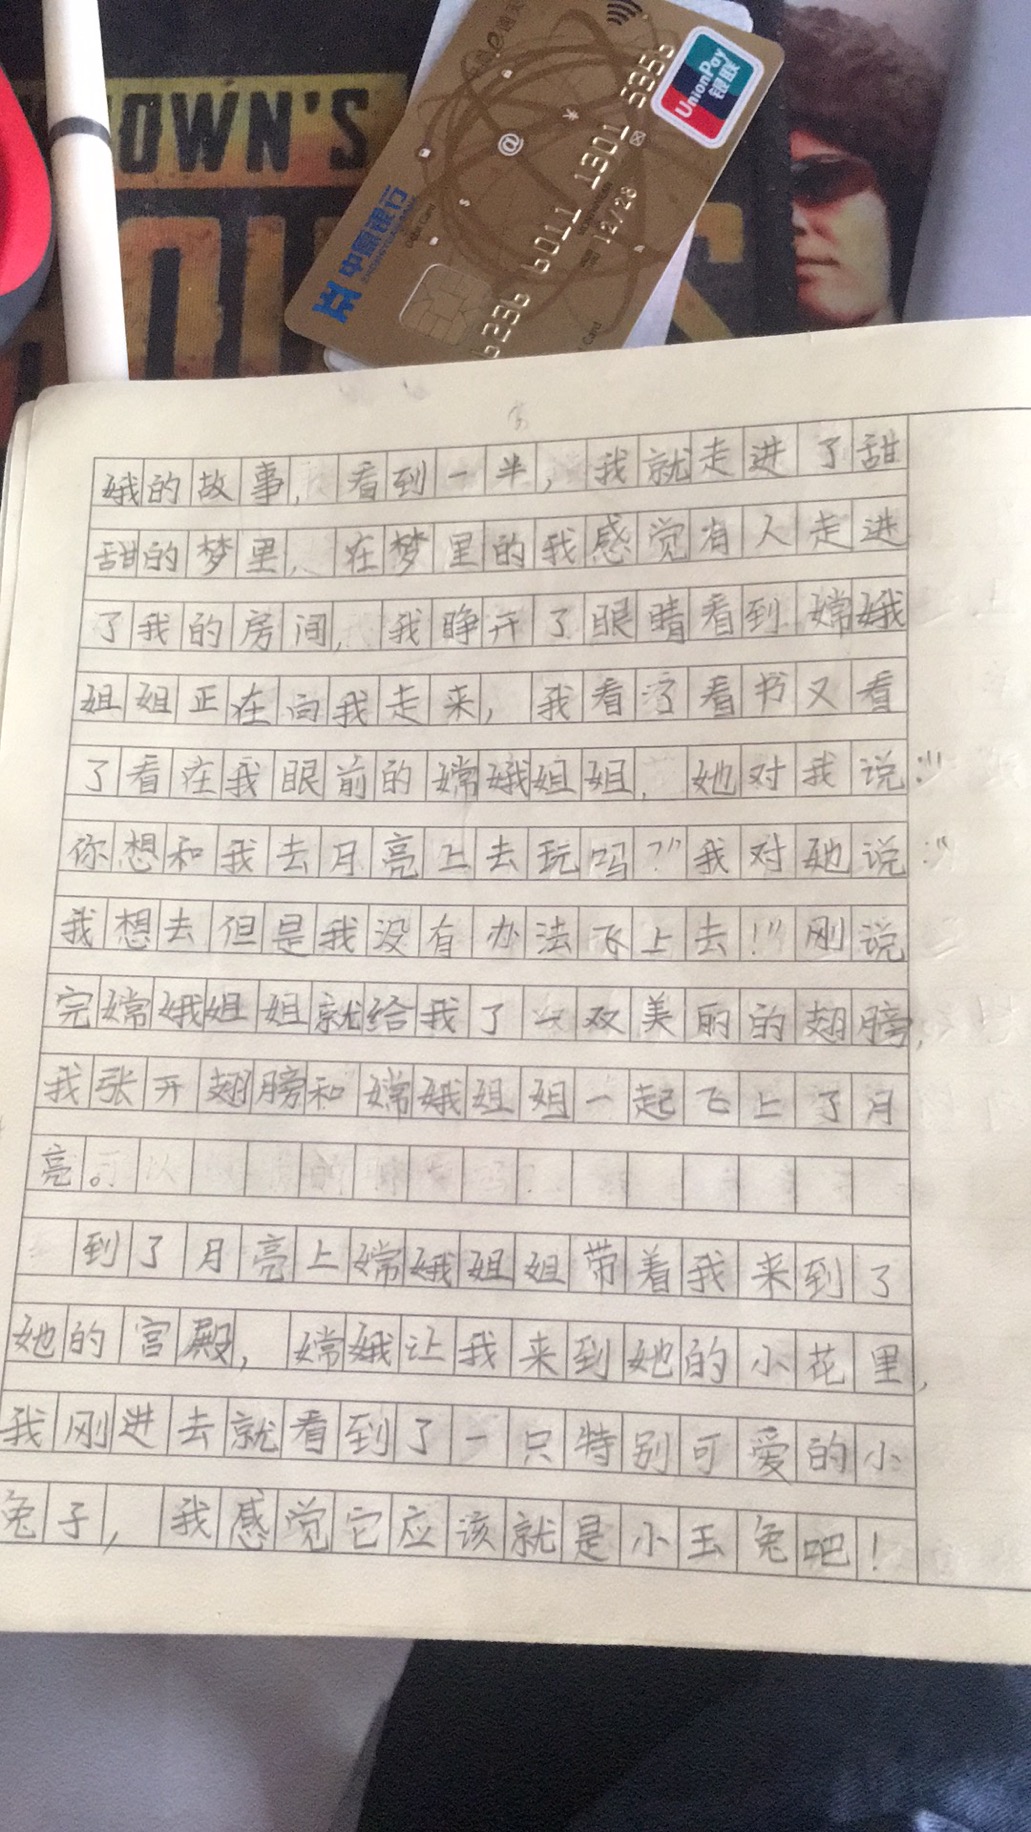 OWN'S
UnionPay
银联
中原银行
6236 6011 1301 5956
12/28
娥的故事, 看到一半, 我就走进了甜
甜的梦里, 在梦里的我感觉有人走进
了我的房间, 我睁开了眼睛看到嫦娥
姐姐正在向我走来, 我看了看书又看
了看在我眼前的嫦娥姐姐, 她对我说:"
你想和我去月亮上去玩吗?"我对她说:"
我想去但是我没有办法飞上去!"刚说
完嫦娥姐姐就给我了一双美丽的翅膀,
我张开翅膀和嫦娥姐姐一起飞上了月
亮。
到了月亮上嫦娥姐姐带着我来到了
她的宫殿, 嫦娥让我来到她的小花里,
我刚进去就看到了一只特别可爱的小
兔子, 我感觉它应该就是小玉兔吧!